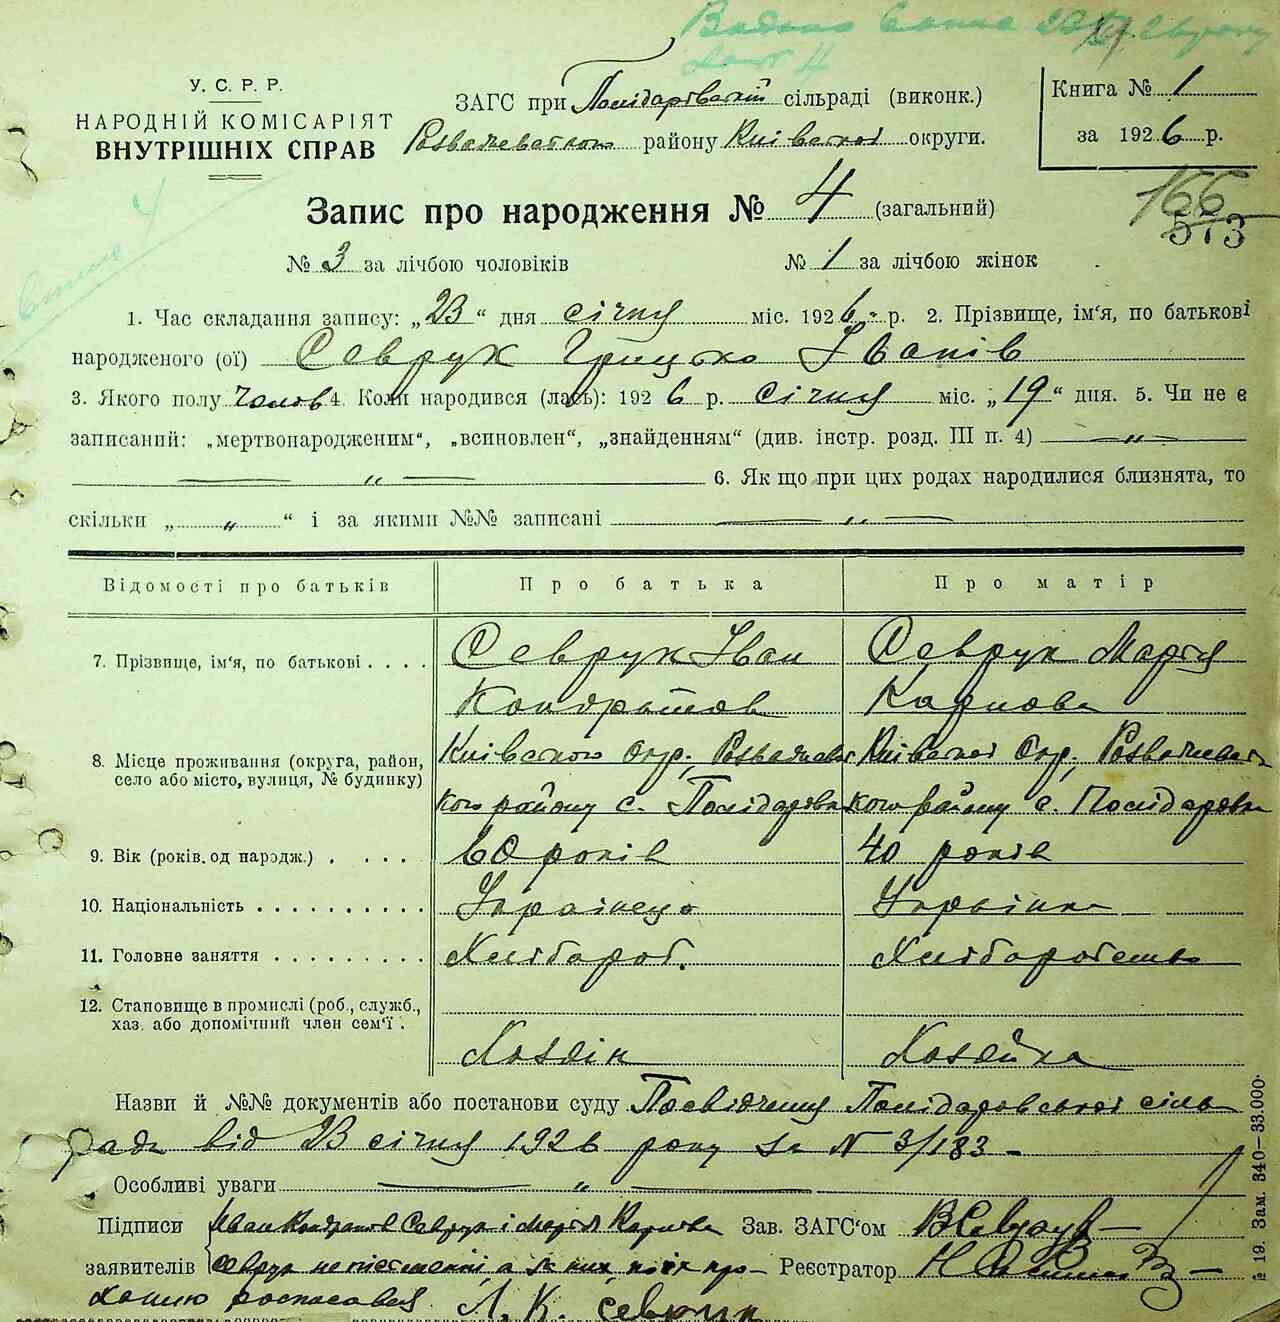 Видано 23/XI 26 року
4
У. С. Р. Р.
НАРОДНІЙ КОМІСАРІЯТ
ВНУТРІШНІХ СПРАВ
ЗАГС при сільраді (виконк.)
району Київської округи.
Книга № 1
за 1926 р.
4
Запис про народження № 4 (загальний)
166
573
№ 3 за лічбою чоловіків № 1 за лічбою жінок
1. Час складання запису: „23“ дня січня міс. 1926 р. 2. Прізвище, ім'я, по батькові
народженого (ої) Севрук Грицько Іванів
3. Якого полу Чолов 4. Коли народився (лась): 1926 р. січня міс. „19“ дня. 5. Чи не є
записаний: „мертвонародженим“, „всиновлен“, „знайденням“ (див. інстр. розд. III п. 4) — „ —
— „ — 6. Як що при цих родах народилися близнята, то
скільки „ „ “ і за якими №№ записані — „ —
Відомості про батьків Про батька Про матір
7. Прізвище, ім'я, по батькові . . . . Севрук Іван Севрук Марія
Кондратов Карпова
8. Місце проживання (округа, район, Київського Окр., Розважевс Київської Окр., Розважевсь
село або місто, вулиця, № будинку) кого району с. кого району с.
9. Вік (років од народж.) . . . . . 60 років 40 років
10. Національність . . . . . . . . . . Українець Українка
11. Головне заняття . . . . . . . . . Хлібороб
12. Становище в промислі (роб., служб.,
хаз. або допомічний член сем'ї . Хозяїн Хозяйка
Назви й №№ документів або постанови суду Посвідчення сіль
ради від 23 січня 1926 року за N 3/183 –
Особливі уваги — „ —
Підписи Іван Кондратов Севрук і Марія Карпова Зав. ЗАГС'ом
заявителів Севрук не письменні, а за них Реєстратор
росписався Л. К. Севрук
№ 19. Зам. 340—33.000.